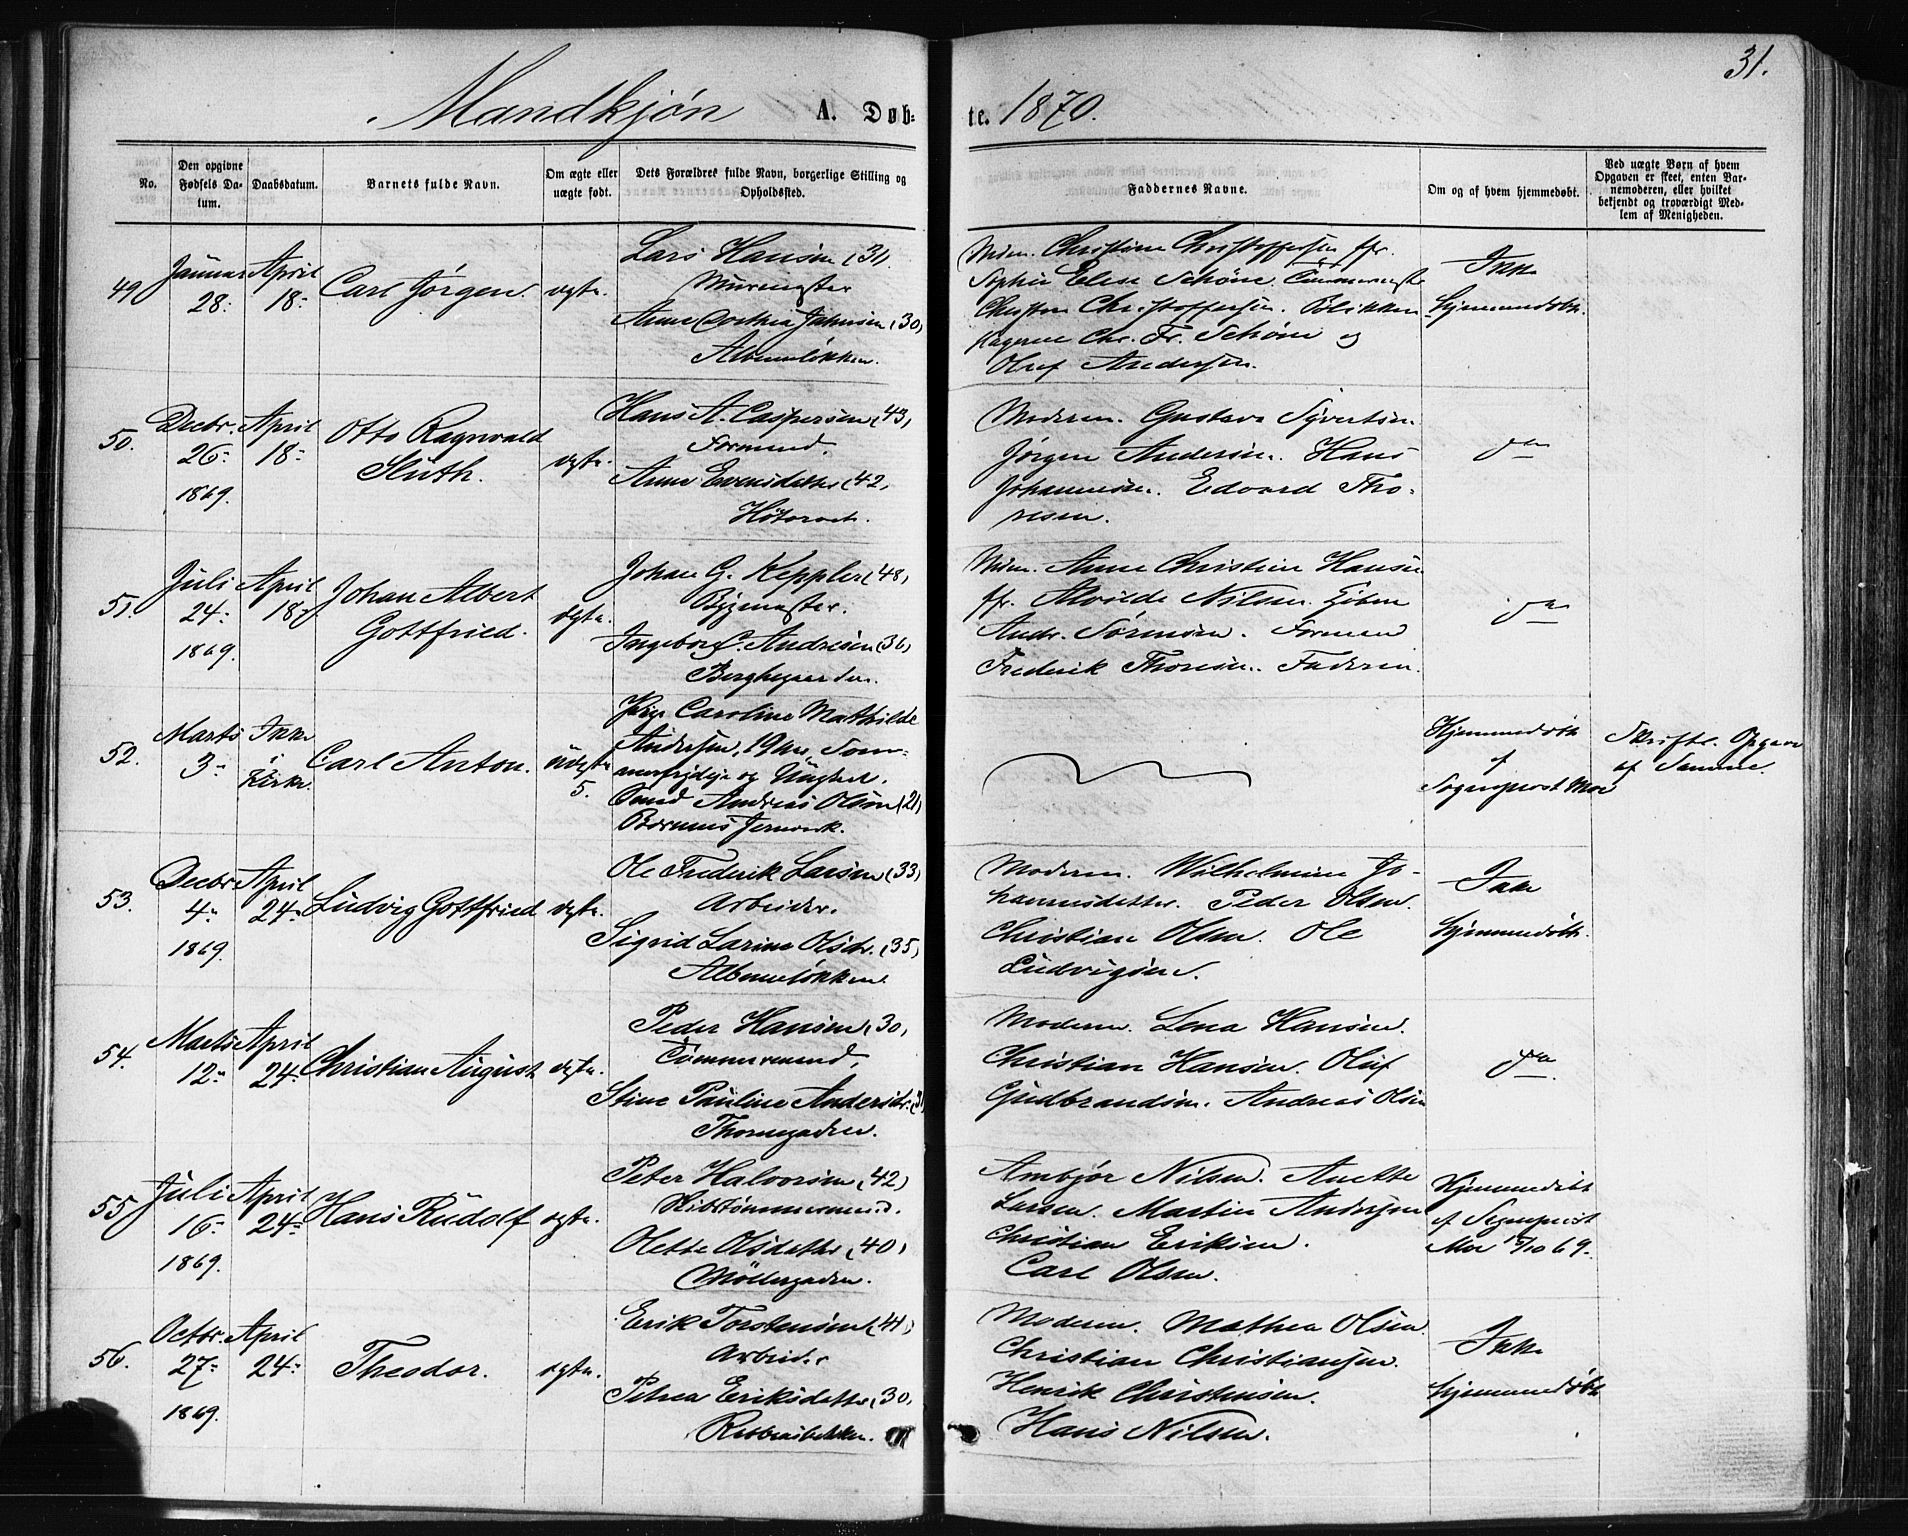 31.
Mandkjøn A. Døb- te. 1870.
No.
Den opgivne Fødsels Da-
tum.
Daabsdatum.
Barnets fulde Navn.
Om ægte eller
uægte født.
Dets Forældres fulde Navn, borgerlige Stilling og
Opholdssted.
Faddernes Navne.
Om og af hvem hjemmedøbt.
Ved uægte Børn af hvem
Opgaven er skeet, enten Bar-
nemoderen, eller hvilket
bekjendt og troværdigt Med-
lem af Menigheden.
49
Januar
28-
April
18-
Carl Jørgen.
ægte.
Lars Hansen (31)
Murmester
Anne Dorthea Jahnsen (30)
Albumløkken.
Mdm. Christine Christoffersen
Sophie Elise Schöne. Tømmermester
Christen Christoffersen. Blikken
slagerne Chr. Fr. Schöne og
Oluf Andersen.
Ikke
hjemmedøbt.
50.
Decbr.
26-
1869.
April
18-
Otto Ragnvald
Sluth.
ægte.
Hans A. Caspersen (43)
Formand.
Anne Evensdatter (42)
Høtorvet.
Moderen. Gustava Syvertsen.
Jørgen Andersen. Hans
Johannesen. Edvard Tho-
resen.
do
51.
Juli
24-
1869.
April
18-
Johan Albert
Gottfried.
ægte.
Johan G. Keppler (48)
Bygmester.
Ingeborg C. Andresen (36)
Berghgaarden.
Mdm. Anne Christine Hansen
Alvilde Nilsen.
Andr. Sørensen. Formand
Frederik Thoresen. Faderen.
do
52.
Marts
3-
Ikke
i
Kirke.
Carl Anton.
uægte
5.
Pige Caroline Mathilde
Andersen, 19 Aar,
og Ungkarl.
Smed Andreas Olsen (21)
Bærums Jernverk.
Hjemmedøbt
af
Sognepræst Moe
Skriftl. Opgave
af Samme.
53.
Decbr
4-
1869.
April
24-
Ludvig Gottfried
ægte.
Ole Frederik Larsen (33)
Arbeider.
Sigrid Larine Olsdr. (35)
Albumløkken
Moderen. Wilhelmine Jo-
hannesdatter. Peder Olsen.
Christian Olsen. Ole
Ludvigsen.
Ikke
hjemmedøbt.
54.
Marts
12-
April
24-
Christian August
ægte.
Peder Hansen (30)
Tømmermand,
Stine Pauline Andersdr. (31)
Thornegaden.
Moderen. Lena Hansen.
Christian Hansen. Oluf
Gudbrandsen. Andreas Olsen
do.
55
Juli
16-
1869.
April
24-
Hans Rudolf
ægte.
Peter Halvorsen (42)
Skibstømmermand.
Olette Olsdatter (40)
Møllergaden.
Ambjør Nilsen. Anette
Larsen. Martin Andersen
Christian Eriksen.
Carl Olsen.
Hjemmedøbt
af Sognepræst
Moe 15/10 69.
56.
Octbr.
27-
1869.
April
24-
Theodor.
ægte.
Erik Torstensen (41)
Arbeider
Petrea Eriksdatter (30)
Moderen. Mathea Olsen.
Christian Christiansen.
Henrik Christensen.
Hans Nilsen.
Ikke
hjemmedøbt